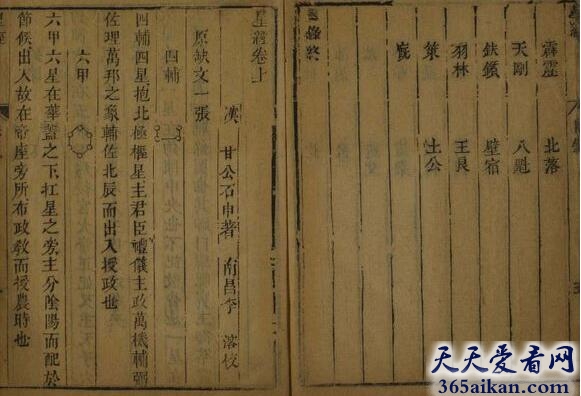 霹靂 北落
天剛 八魁
鈇鑕 壁宿
羽林 王良
策 土公
星經卷上
漢 甘公石申著 南昌李
原缺文一張
四輔
四輔四星抱北極樞星主君臣禮儀主政萬機輔弼
佐理萬邦之象輔佐北辰而出入授政也
六甲
六甲六星在華蓋之下扛星之旁主分陰陽而配於
節候出入故在帝座旁所布政教而授農時也
天天爱看网
365aikan.com